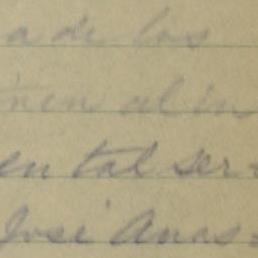 a de los
nen al in
en tal ser-
José Anas-